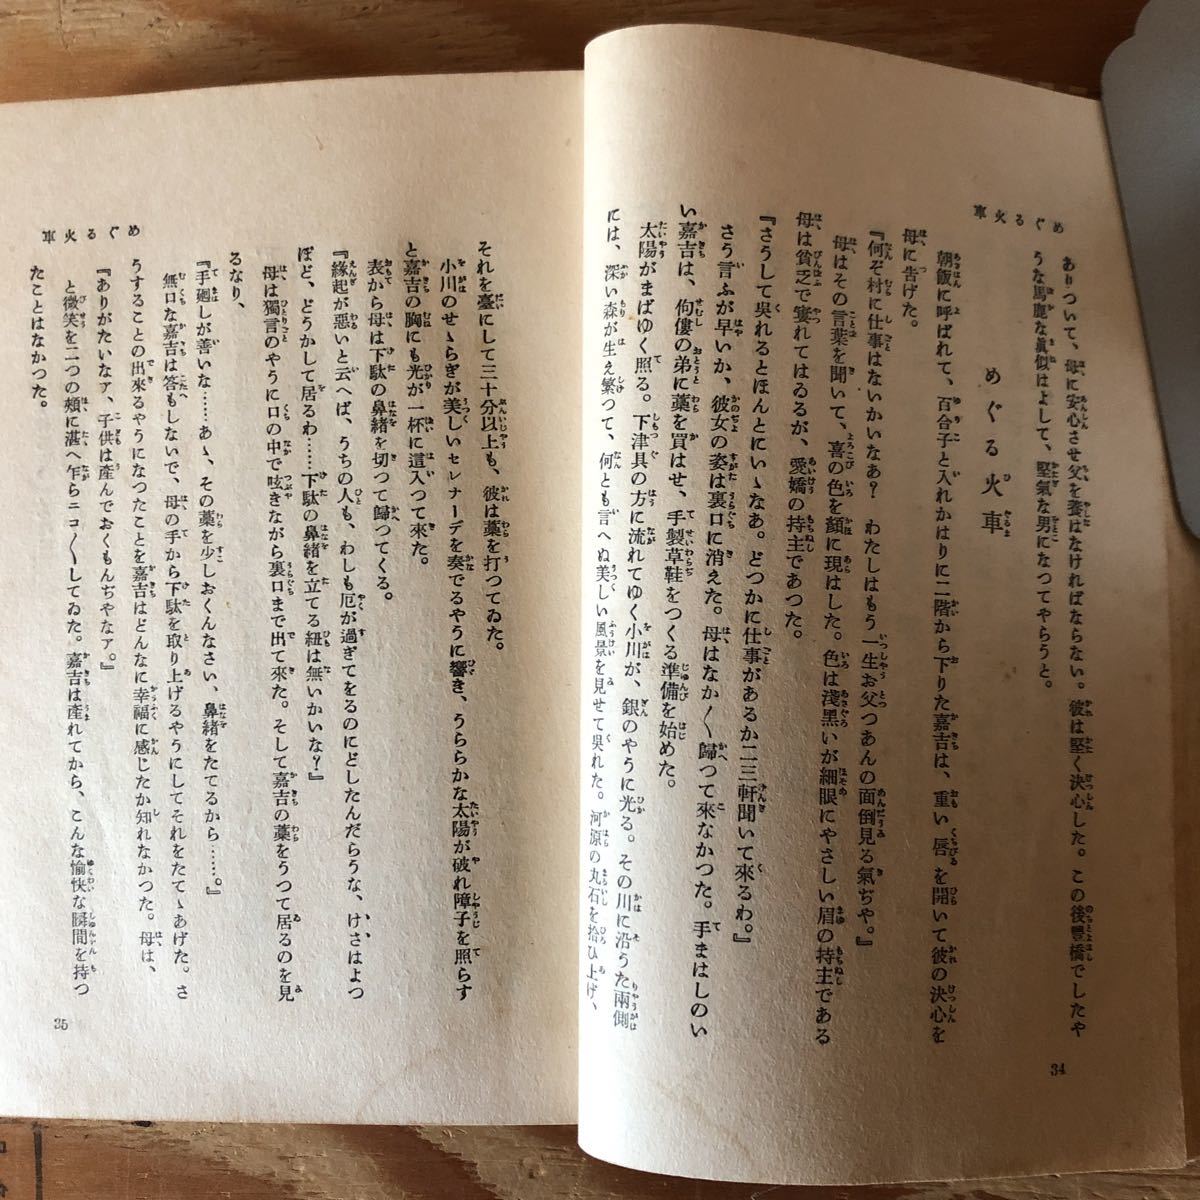 めぐる火車
ありついて、母に安心させ父を養はなければならない。彼は堅く決心した。この後豐橋でしたや
うな馬鹿な眞似はよして、堅氣な男になつてやらうと。
めぐる火車
朝飯に呼ばれて、百合子と入れかはりに二階から下りた嘉吉は、重い唇を開いて彼の決心を
母に告げた。
『何ぞ村に仕事はないかいなあ？　わたしはもう一生お父つあんの面倒見る氣ぢや。』
母はその言葉を聞いて、喜の色を顏に現はした。色は淺黑いが細眼にやさしい眉の持主である
母は貧乏で窶れてはゐるが、愛嬌の持主であつた。
『さうして吳れるとほんとにいゝなあ。どつかに仕事があるか二三軒聞いて來るわ。』
さう言ふが早いか、彼女の姿は裏口に消えた。母はなか〱歸つて來なかつた。手まはしのい
い嘉吉は、佝僂の弟に藁を買はせ、手製草鞋をつくる準備を始めた。
太陽がまばゆく照る。下津具の方に流れてゆく小川が、銀のやうに光る。その川に沿うた兩側
には、深い森が生え繁つて、何とも言へぬ美しい風景を見せて吳れた。河原の丸石を拾ひ上げ、
34
それを臺にして三十分以上も、彼は藁を打つてゐた。
小川のせゝらぎが美しいセレナーデを奏でるやうに響き、うららかな太陽が破れ障子を照らす
と嘉吉の胸にも光が一杯に這入つて來た。
表から母は下駄の鼻緒を切つて歸つてくる。
『緣起が惡いと云へば、うちの人も、わしも厄が過ぎてをるのにどしたんだらうな、けさはよつ
ぽど、どうかして居るわ……下駄の鼻緒を立てる紐は無いかいな？』
母は獨言のやうに口の中で呟きながら裏口まで出て來た。そして嘉吉の藁をうつて居るのを見
るなり、
『手廻しが善いな……あゝ、その藁を少しおくんなさい、鼻緒をたてるから……。』
無口な嘉吉は答もしないで、母の手から下駄を取り上げるやうにしてそれをたてゝあげた。さ
うすることの出來るやうになつたことを嘉吉はどんなに幸福に感じたか知れなかつた。母は、
『ありがたいなァ、子供は產んでおくもんぢやなァ。』
と微笑を二つの頰に湛へ乍らニコ〱してゐた。嘉吉は產れてから、こんな愉快な瞬間を持つ
たことはなかつた。
めぐる火車
35